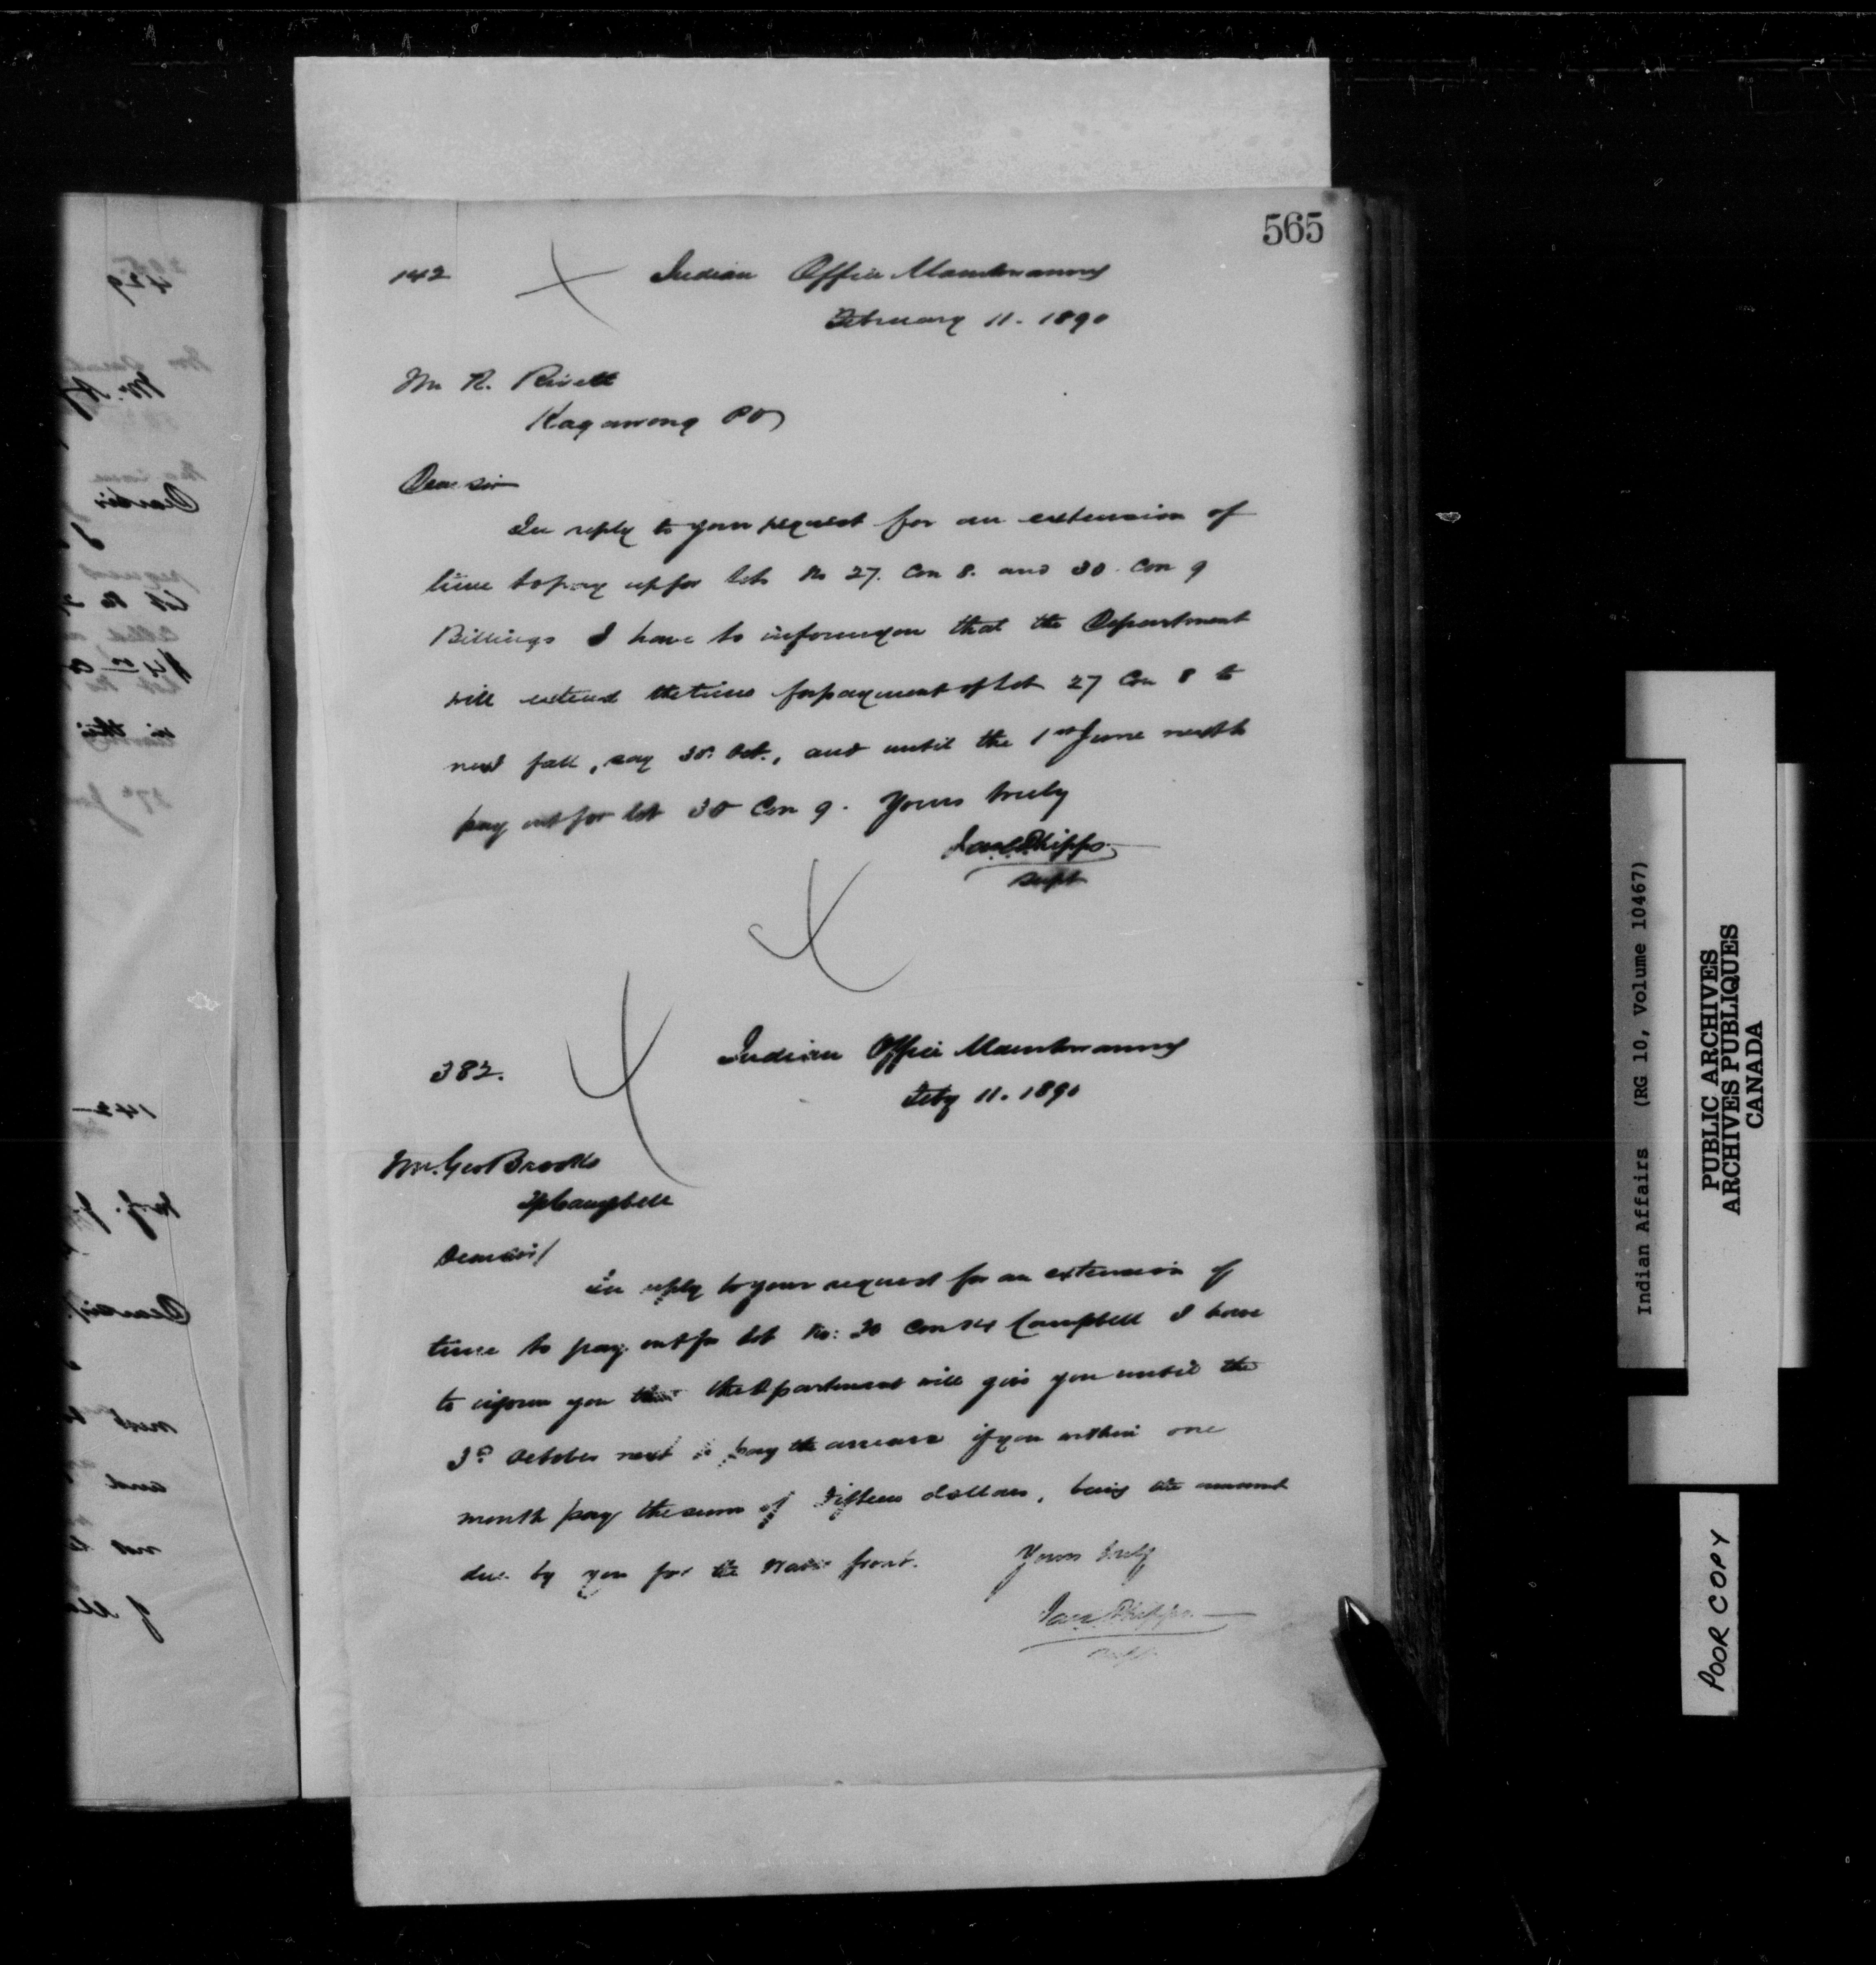 565
142 Indian Office Manitowaning
February 11. 1890
Mr R. Rivett
Kagawong PO
Dear sir
In reply to your request for an extension of
time to pay up for lots No 27. Con 8. and 30. Con 9
Billings I have to inform you that the Department
will extend the time for payment of lot 27 Con 8 to
next fall, say 30. Oct., and until the 1st June next to
pay out for lot 30 Con 9. Yours truly
Jas C Phipps
Supt
382. Indian Office Manitowaning
Feby 11. 1890
Mr. Geo Brooks
Tp Campbell
Dear sir/
In reply to your request for an extension of
time to pay out for lot No: 30 Con 14 Campbell I have
to inform you that the Department will give you until the
October next to pay the arrears if you within one
month pay the sum of Fifteen dollars, being the amount
due by you for the front. Yours truly
Jas C Phipps
Supt
429
Dear sir
142
Dear sir
Indian Affairs (RG 10, Volume 10467)
PUBLIC ARCHIVES
ARCHIVES PUBLIQUES
CANADA
POOR COPY